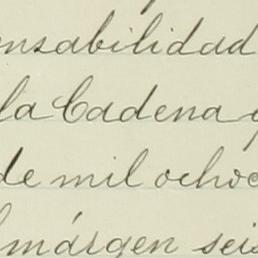 ensabilidad
la Cadena
de mil ochoc
márgen seis